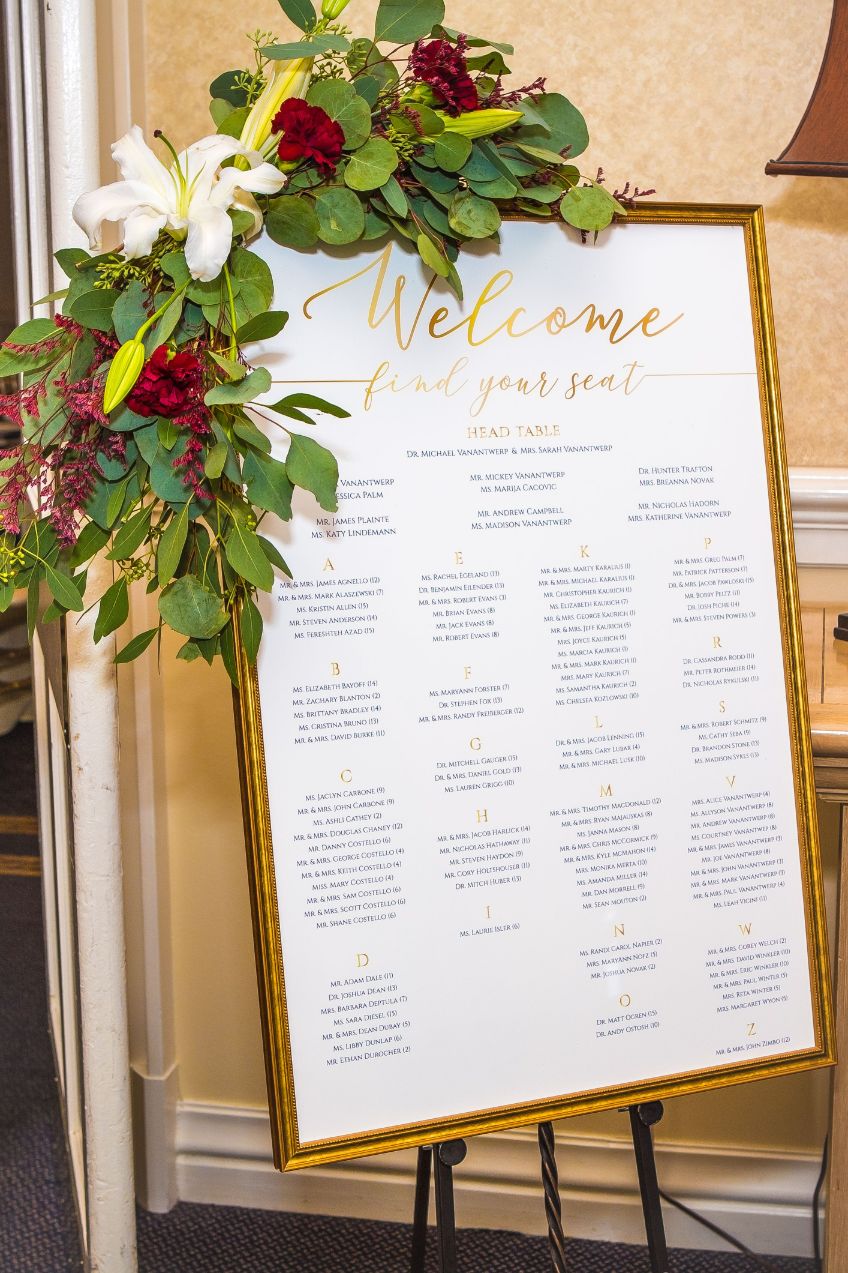 Welcome
find your seat
HEAD TABLE
Dr. Michael VanAntwerp & Mrs. Sarah VanAntwerp
VanAntwerp
Jessica Palm
Mr. James Plainte
Ms. Katy Lindemann
Mr. Mickey VanAntwerp
Ms. Marija Cacovic
Mr. Andrew Campbell
Ms. Madison VanAntwerp
Dr. Hunter Trafton
Mrs. Breanna Novak
Mr. Nicholas Hadorn
Mrs. Katherine VanAntwerp
A
Mr. & Mrs. James Agnello (12)
Mr. & Mrs. Mark Alaszewski (7)
Ms. Kristin Allen (15)
Mr. Steven Anderson (14)
Ms. Fereshteh Azad (15)
B
Ms. Elizabeth Bayoff (14)
Mr. Zachary Blanton (2)
Ms. Brittany Bradley (14)
Ms. Cristina Bruno (13)
Mr. & Mrs. David Burke (11)
C
Ms. Jaclyn Carbone (9)
Mr. & Mrs. John Carbone (9)
Ms. Ashli Cathey (2)
Mr. & Mrs. Douglas Chaney (12)
Mr. Danny Costello (6)
Mr. & Mrs. George Costello (4)
Mr. & Mrs. Keith Costello (4)
Miss. Mary Costello (4)
Mr. & Mrs. Sam Costello (6)
Mr. & Mrs. Scott Costello (6)
Mr. Shane Costello (6)
D
Mr. Adam Dale (11)
Dr. Joshua Dean (13)
Mrs. Barbara Deptula (7)
Ms. Sara Diesel (15)
Mr. & Mrs. Dean Dubay (5)
Ms. Libby Dunlap (6)
Mr. Ethan Durocher (2)
E
Ms. Rachel Egeland (13)
Dr. Benjamin Eilender (13)
Mr. & Mrs. Robert Evans (3)
Mr. Brian Evans (8)
Mr. Jack Evans (8)
Mr. Robert Evans (8)
F
Ms. MaryAnn Forster (7)
Dr. Stephen Fox (13)
Mr. & Mrs. Randy Freiberger (12)
G
Dr. Mitchell Gauger (15)
Dr. & Mrs. Daniel Gold (13)
Ms. Lauren Grigg (10)
H
Mr. & Mrs. Jacob Harlick (14)
Mr. Nicholas Hathaway (11)
Mr. Steven Haydon (9)
Mr. Cory Holtshouser (11)
Dr. Mitch Huber (13)
I
Ms. Laurie Isler (6)
K
Mr. & Mrs. Marty Karalius (1)
Mr. & Mrs. Michael Karalius (1)
Mr. Christopher Kaurich (1)
Ms. Elizabeth Kaurich (7)
Mr. & Mrs. George Kaurich (1)
Mr. & Mrs. Jeff Kaurich (5)
Mrs. Joyce Kaurich (5)
Ms. Marcia Kaurich (1)
Mr. & Mrs. Mark Kaurich (1)
Mrs. Mary Kaurich (7)
Ms. Samantha Kaurich (2)
Ms. Chelsea Kozlowski (10)
L
Dr. & Mrs. Jacob Lenning (15)
Mr. & Mrs. Gary Lubar (4)
Mr. & Mrs. Michael Lusk (10)
M
Mr. & Mrs. Timothy MacDonald (12)
Mr. & Mrs. Ryan Majauskas (8)
Ms. Janna Mason (8)
Mr. & Mrs. Chris McCormick (9)
Mr. & Mrs. Kyle McMahon (14)
Mrs. Monika Merta (10)
Ms. Amanda Miller (14)
Mr. Dan Morrell (9)
Mr. Sean Mouton (2)
N
Ms. Randi Carol Napier (2)
Mrs. MaryAnn Notz (5)
Mr. Joshua Novak (2)
O
Dr. Matt Ogren (15)
Dr. Andy Ostosh (10)
P
Mr. & Mrs. Greg Palm (7)
Mr. Patrick Patterson (7)
Dr. & Mrs. Jacob Pawloski (15)
Mr. Bobby Peltz (11)
Dr. Josh Piche (14)
Mr. & Mrs. Steven Powers (3)
R
Dr. Cassandra Rodd (11)
Mr. Peter Rothmeier (14)
Dr. Nicholas Rykulski (11)
S
Mr. & Mrs. Robert Schmitz (9)
Ms. Cathy Seba (9)
Dr. Brandon Stone (13)
Ms. Madison Sykes (13)
V
Mrs. Alice VanAntwerp (4)
Ms. Allyson VanAntwerp (8)
Mr. Andrew VanAntwerp (8)
Ms. Courtney VanAntwerp (8)
Mr. & Mrs. James VanAntwerp (3)
Mr. Joe VanAntwerp (8)
Mr. & Mrs. John VanAntwerp (3)
Mr. & Mrs. Mark VanAntwerp (3)
Mr. & Mrs. Paul VanAntwerp (4)
Ms. Leah Vicini (11)
W
Mr. & Mrs. Corey Welch (2)
Mr. & Mrs. David Winkler (10)
Mr. & Mrs. Eric Winkler (10)
Mr. & Mrs. Paul Winter (5)
Mrs. Rita Winter (5)
Mrs. Margaret Wyon (5)
Z
Mr. & Mrs. John Zimbo (12)